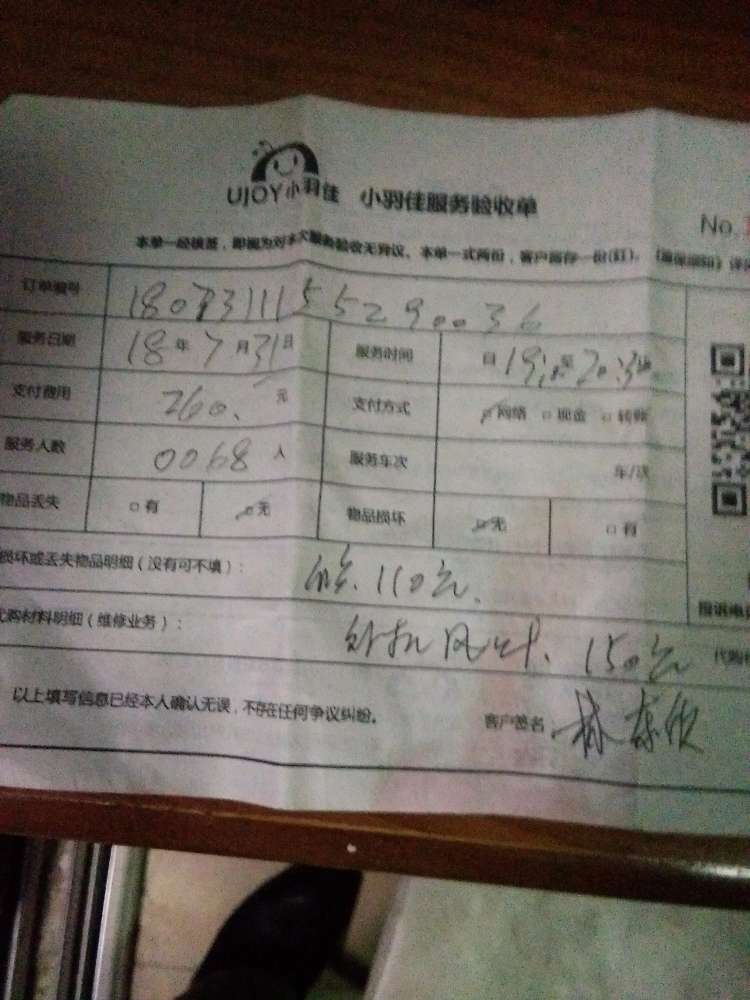 UJOY小羽佳 小羽佳服务验收单
No.
本单一经核签，即视为对本次服务验收无异议。本单一式两份，客户留存一份(红)。
订单编号 1807311155290036
服务日期 18年7月31日 服务时间 自19:00至20:30
支付费用 260.元 支付方式 网络 现金 转账
服务人数 0068人 服务车次 车/次
物品丢失 有 无 物品损坏 无 有
损坏或丢失物品明细（没有可不填）： 110元.
代购材料明细（维修业务）： 外机风叶. 150元
以上填写信息已经本人确认无误，不存在任何争议纠纷。 客户签名
投诉电话